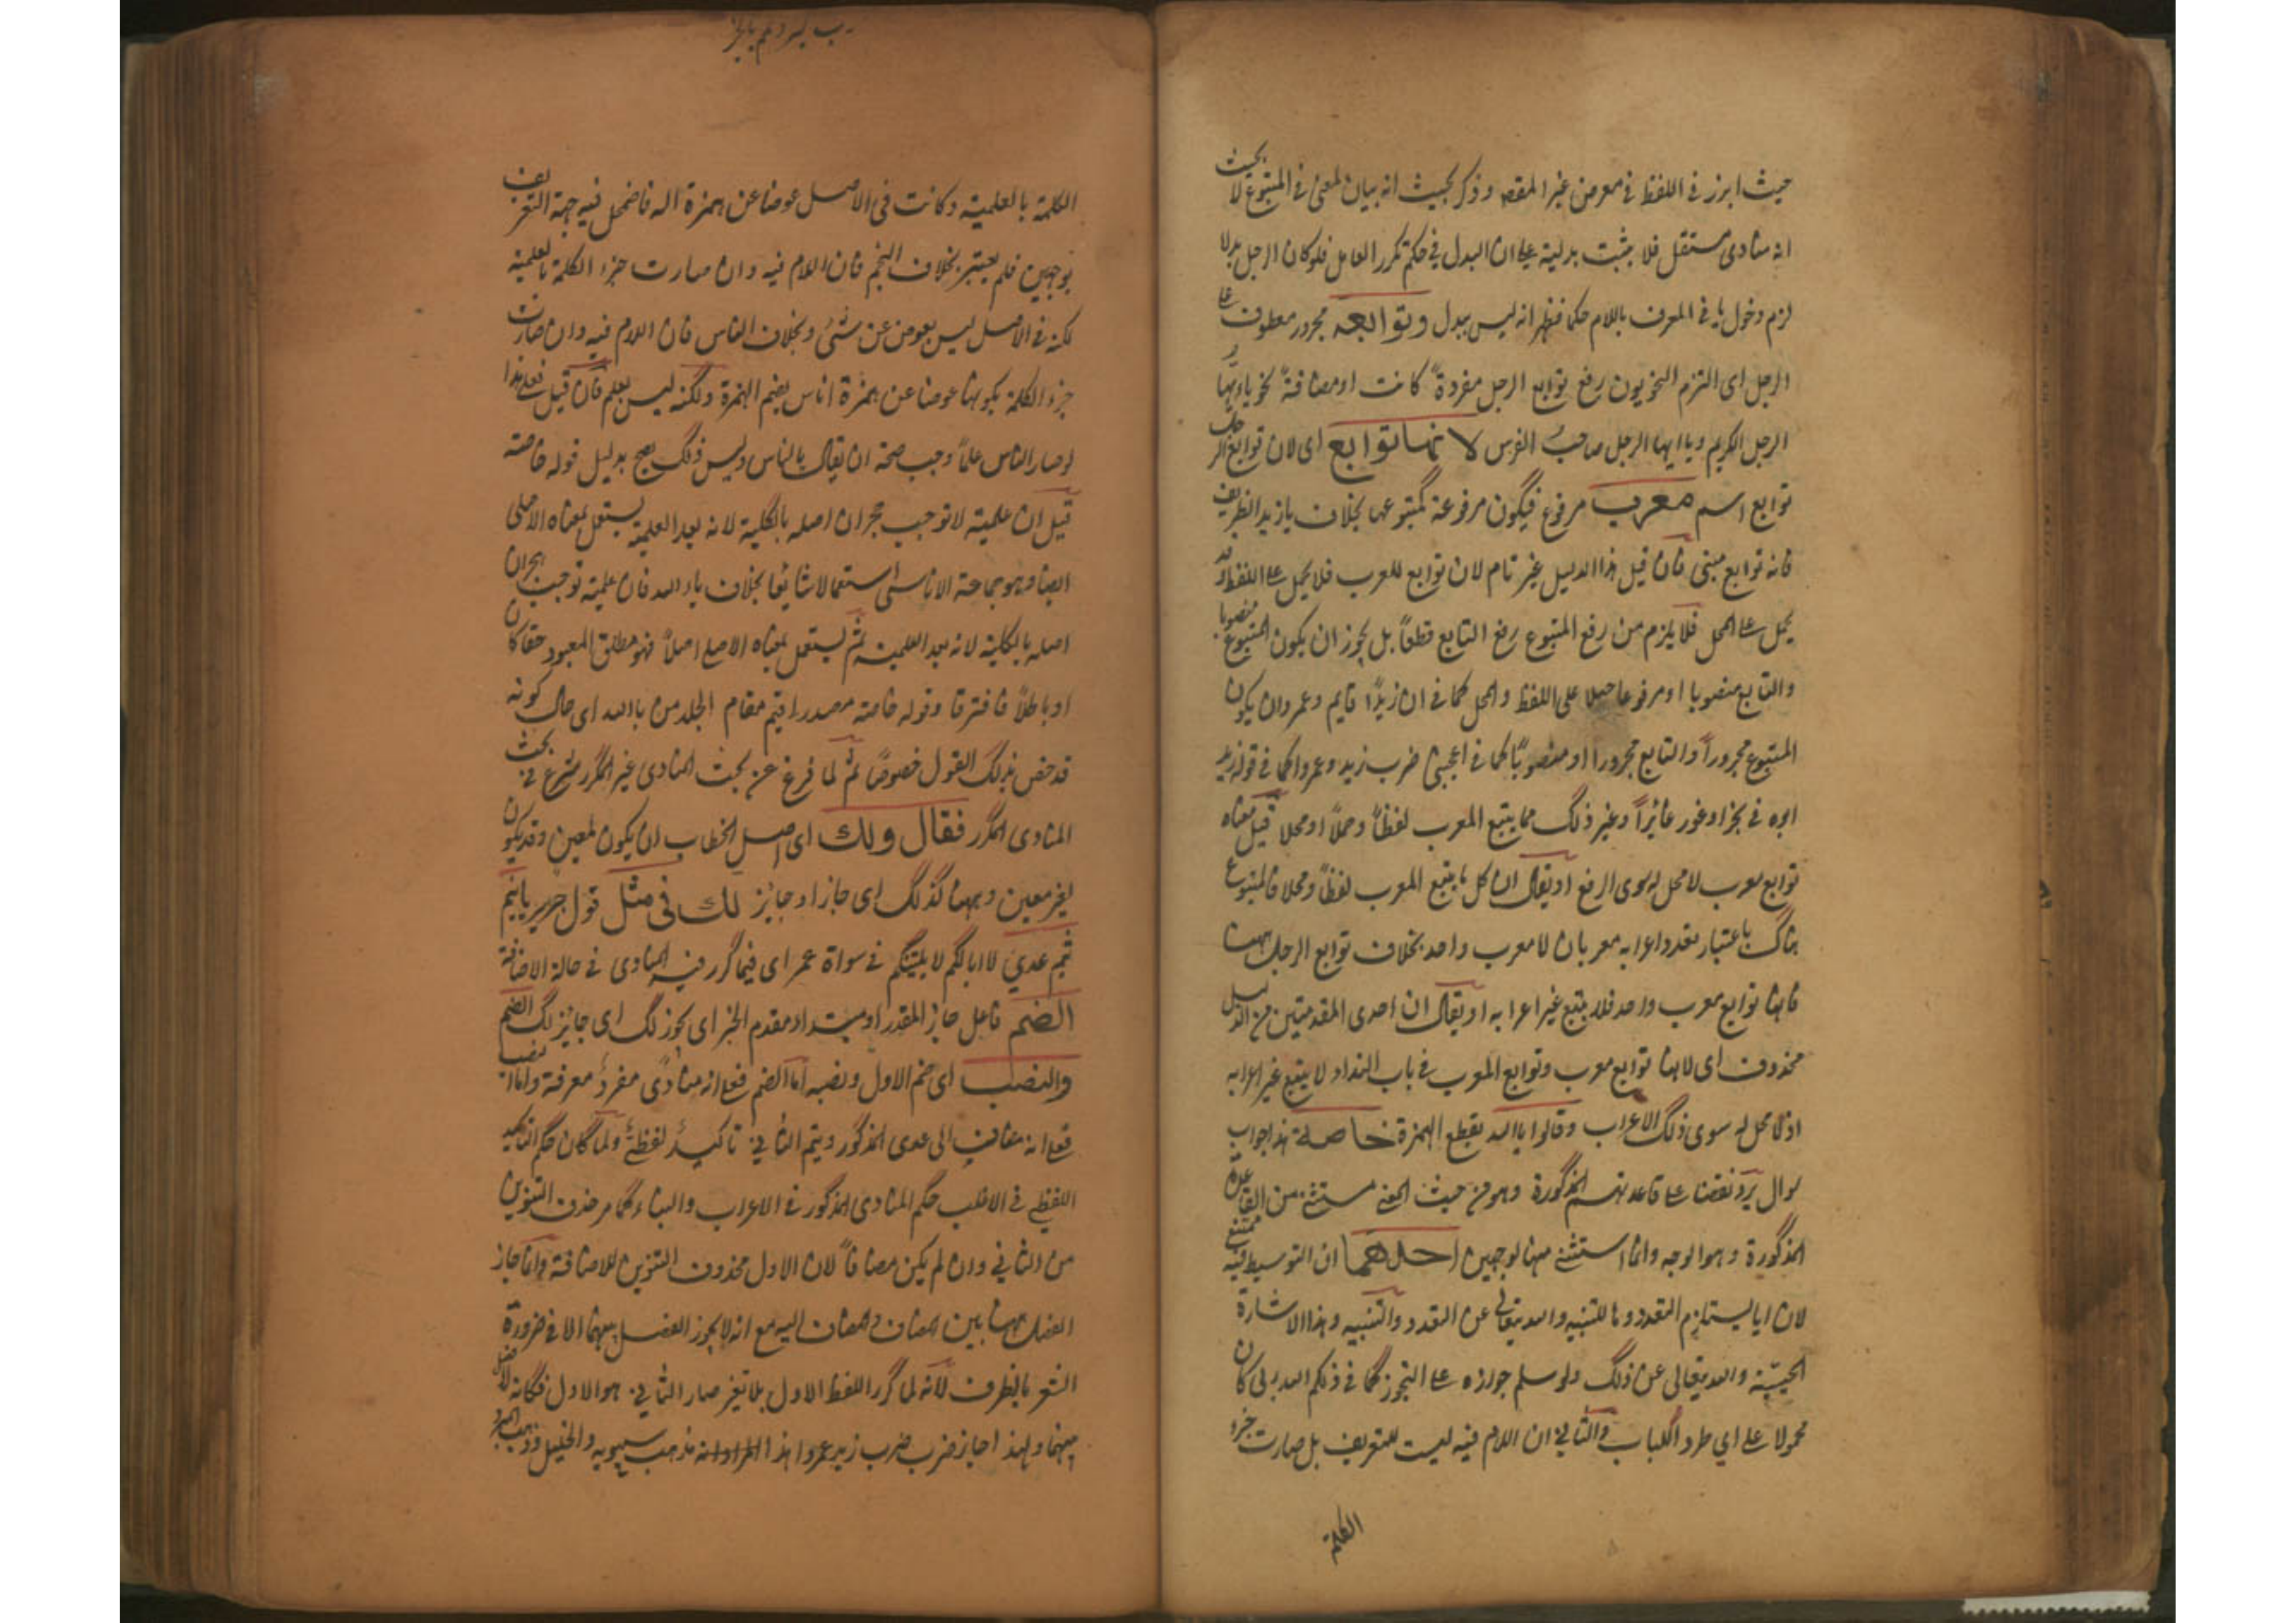 حيث ابرز في اللفظ في معرض غير المقصود وذكر بحيث انه بيان لمعنى في المتبوع لا بحيث
انه منادى مستقل فلا يثبت بدلية على ان البدل في حكم تكرر العامل فلو كان الرجل بدلا
لزم دخول يا في المعرف باللام حكما فظهر انه ليس ببدل وتوابعه مجرور معطوف على
الرجل اى التزم النحويون رفع توابع الرجل مفردة كانت او مضافة نحو يا ايها
الرجل الكريم ويا ايها الرجل صاحب الفرس لانها توابع اى لان توابع الرجل
توابع اسم معرب مرفوع فيكون مرفوعة كمتبوعها بخلاف يا زيد الظريف
فانه توابع مبنى فان قيل هذا الدليل غير تام لان توابع المعرب فلا يحمل على اللفظ وقد
يحمل على المحل فلا يلزم من رفع المتبوع رفع التابع قطعا بل يجوز ان يكون المتبوع منصوبا
والتابع منصوبا او مرفوعا حملا على اللفظ والمحل كما في ان زيدا قايم وعمرو ان يكون
المتبوع مجرورا والتابع مجرورا او منصوبا كما في اعجبنى ضرب زيد وعمروا كما في قوله
وغير ذلك مما يتبع المعرب لفظا وحملا او محلا قيل معناه
توابع معرب لا محل له سوى الرفع او يقال ان كل ما يتبع المعرب لفظا ومحلا فالمتبوع
هناك باعتبار تعدد اعرابه معربان لا معرب واحد بخلاف توابع الرجل ههنا
فانها توابع معرب واحد فلا يتبع غير اعرابه او يقال ان احدى المقدمتين من الدليل
محذوف اى لانها توابع معرب وتوابع المعرب في باب النداء لا يتبع غير اعرابه
اذ لا محل له سوى ذلك الاعراب وقالوا يا الله بقطع الهمزة خاصة هذا جواب
سوال يرد نقضا على قاعدتهم المذكورة وهو من حيث المعنى مستثنى من القاعدة
المذكورة وهو الوجه وانما استثنى منها لوجهين احدهما ان التوسيط فيه ممتنع
لان ايا يستلزم التعدد وها للتنبيه والله تعالى عن التعدد والتنبيه وهذا الاشارة
الحسية والله تعالى عن ذلك ولو سلم جوازه على التجوز كما في ذلكم الله ربى كان
محمولا على اي طرد اللباب والثاني ان اللام فيه ليست للتعريف بل صارت جزء
الكلمة
الكلمة بالعلمية وكانت في الاصل عوضا عن همزة اله فاضمحل فيه جهة التعريف
بوجهين فلم يعتبر بخلاف النجم فان اللام فيه وان صارت جزء الكلمة بالعلمية
لكنه في الاصل ليس بعوض عن شئ وبخلاف الناس فان اللام فيه وان صارت
جزء الكلمة بكونها عوضا عن همزة اناس بضم الهمزة ولكنه ليس بعلم فان قيل فعلى هذا
لو صار الناس علما وجب صحة ان يقال يا الناس وليس ذلك يصح بدليل قوله خاصة
قيل ان علمية لا توجب هجران اصله بالكلية لانه بعد العلمية يستعمل بمعناه الاصلى
ايضا وهو جماعة الاناسى استعمالا شايعا بخلاف يا الله فان علمية توجب هجران
اصله بالكلية لانه بعد العلمية لم يستعمل بمعناه الاصلى اصلا فهو مطلق المعبود حقا كان
او باطلا فافترقا وقوله خاصة مصدر اقيم مقام الجلد من يا الله اى حال كونه
قد خص بذلك القول خصوصا ثم لما فرغ عن بحث المنادى غير المكرر شرع في بحث
المنادى المكرر فقال ولك اى اصل الخطاب ان يكون لمعين وقد يكون
لغير معين وههنا كذلك اى جاز او جايز لك فى مثل قول جرير يا تيم
تيم عدى لا ابا لكم لا يلقينكم في سواة عمر اى فيما كرر فيه المنادى في حالة الاضافة
الضم فاعل جاز المقدر او مبتداء مقدم الخبر اى يجوز لك اى جايز لك الضم
والنصب اى ضم الاول ونصبه اما الضم فعلى انه منادى مفرد معرفة واما النصب
فعلى انه مضاف الى عدى المذكور وتيم الثاني تاكيد لفظى ولما كان حكم التاكيد
اللفظى في الاغلب حكم المنادى المذكور في الاعراب والبناء كما مر حذف التنوين
من الثاني وان لم يكن مضافا لان الاول محذوف التنوين للاضافة وانما جاز
الفصل ههنا بين المضاف والمضاف اليه مع انه لا يجوز الفصل بينهما الا في ضرورة
الشعر بالظرف لانه لما كرر اللفظ الاول بلا تغير صار الثاني هو الاول فكانه لا فصل
بينهما ولهذا اجاز ضرب ضرب زيد عمروا هذا مذهب سيبويه والخليل وذهب المبرد